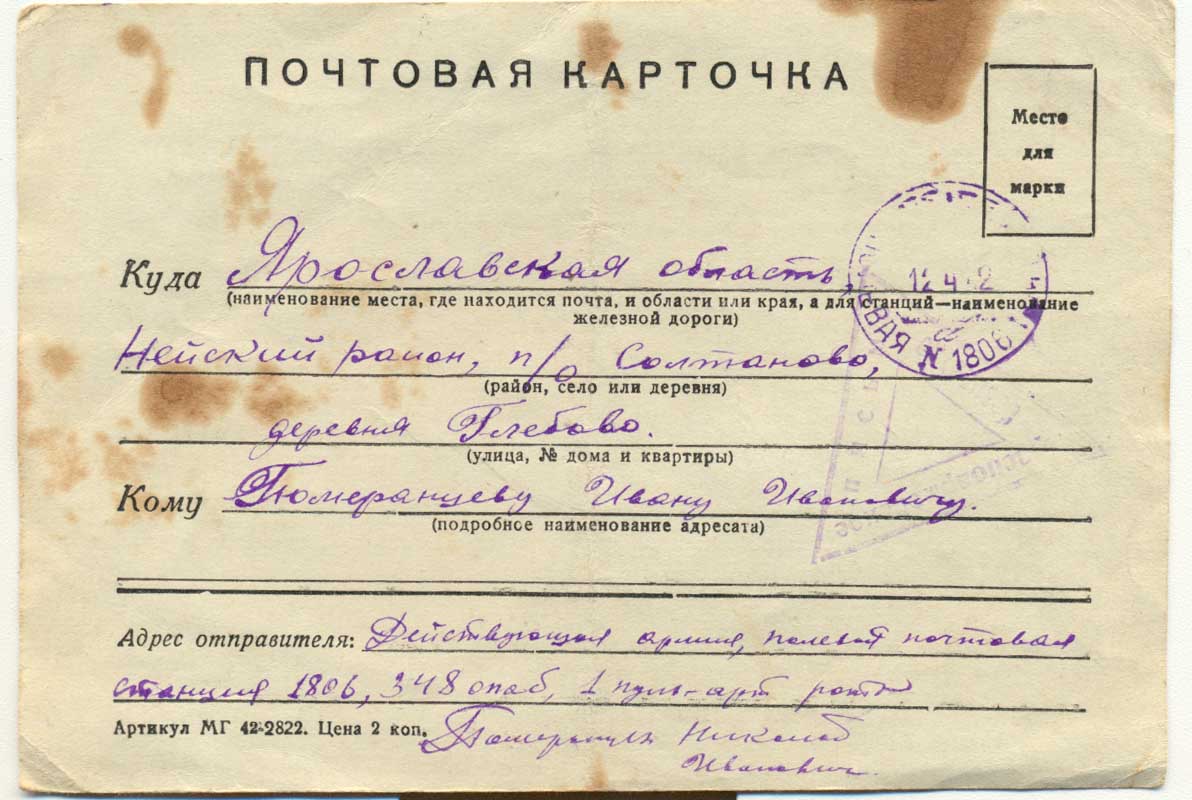 ПОЧТОВАЯ КАРТОЧКА
Место
для
марки
Куда Ярославская область,
(наименование места, где находится почта, и области или края, а для станций—наименование
железной дороги)
Нейский район, п/о Солтаново,
(район, село или деревня)
деревня Глебово.
(улица, № дома и квартиры)
Кому Померанцеву Ивану Ивановичу.
(подробное наименование адресата)
Адрес отправителя: Действующая армия, полевая почтовая
станция 1806, 348 опаб, 1 пуль-арт рота
Артикул МГ 42-2822. Цена 2 коп.
Померанцев Николай
Иванович.
N 1806